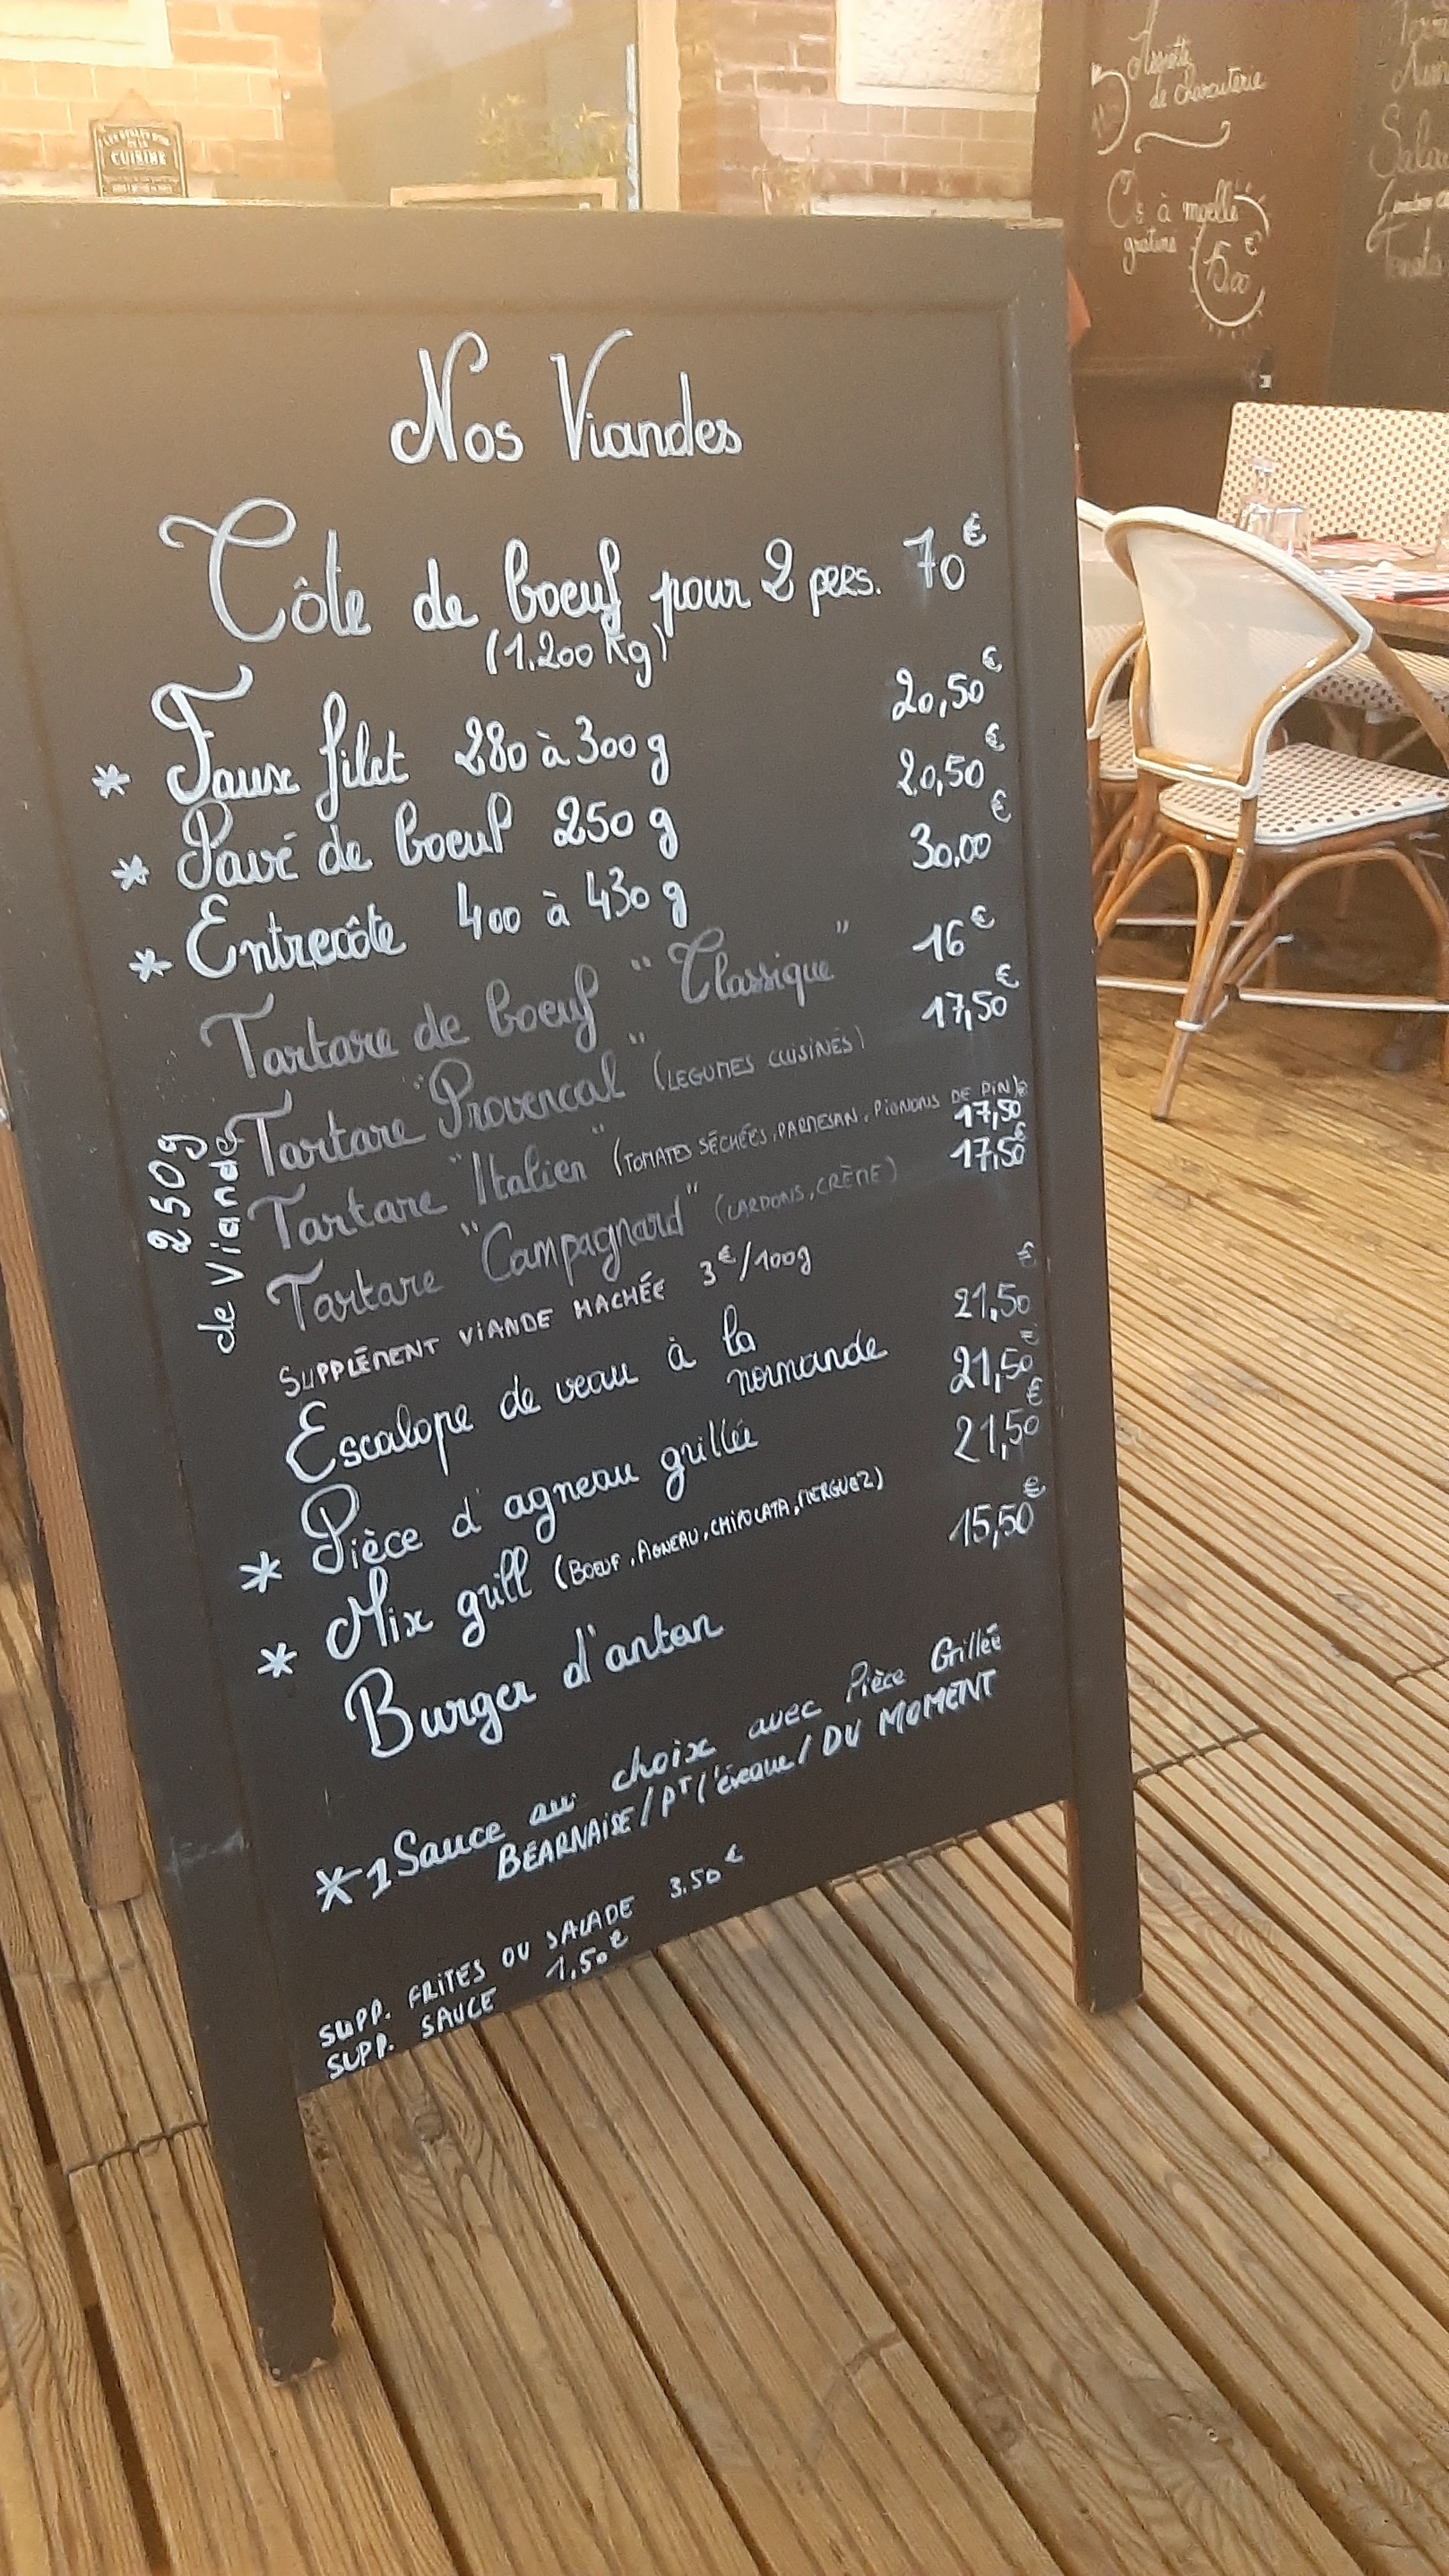 CUISINE
Assiette
de charcuterie
Os à moelle
gratiné 15,00 €
Nos Viandes
Côte de boeuf pour 2 pers. 70€
(1.200 Kg)
* Faux filet 280 à 300 g 20,50€
* Pavé de boeuf 250 g 20,50€
* Entrecôte 400 à 430 g 30,00€
Tartare de boeuf "Classique" 16€
Tartare "Provencal" (LEGUMES CUISINÉS) 17,50€
Tartare "Italien" (TOMATES SÉCHÉES, PARMESAN, PIGNONS DE PIN) 17,50€
Tartare "Campagnard" (LARDONS, CRÈME) 17,50€
250g
de Viande
SUPPLÉMENT VIANDE HACHÉE 3€/100g
Escalope de veau à la 21,50€
normande
* Pièce d'agneau grillée 21,50€
* Mix grill (BOEUF, AGNEAU, CHIPOLATA, MERGUEZ) 21,50€
Burger d'antan 15,50€
*1 Sauce au choix avec Pièce Grillée
BÉARNAISE / PT l'évêque / DU MOMENT
SUPP. FRITES OU SALADE 3.50€
SUPP. SAUCE 1,50€